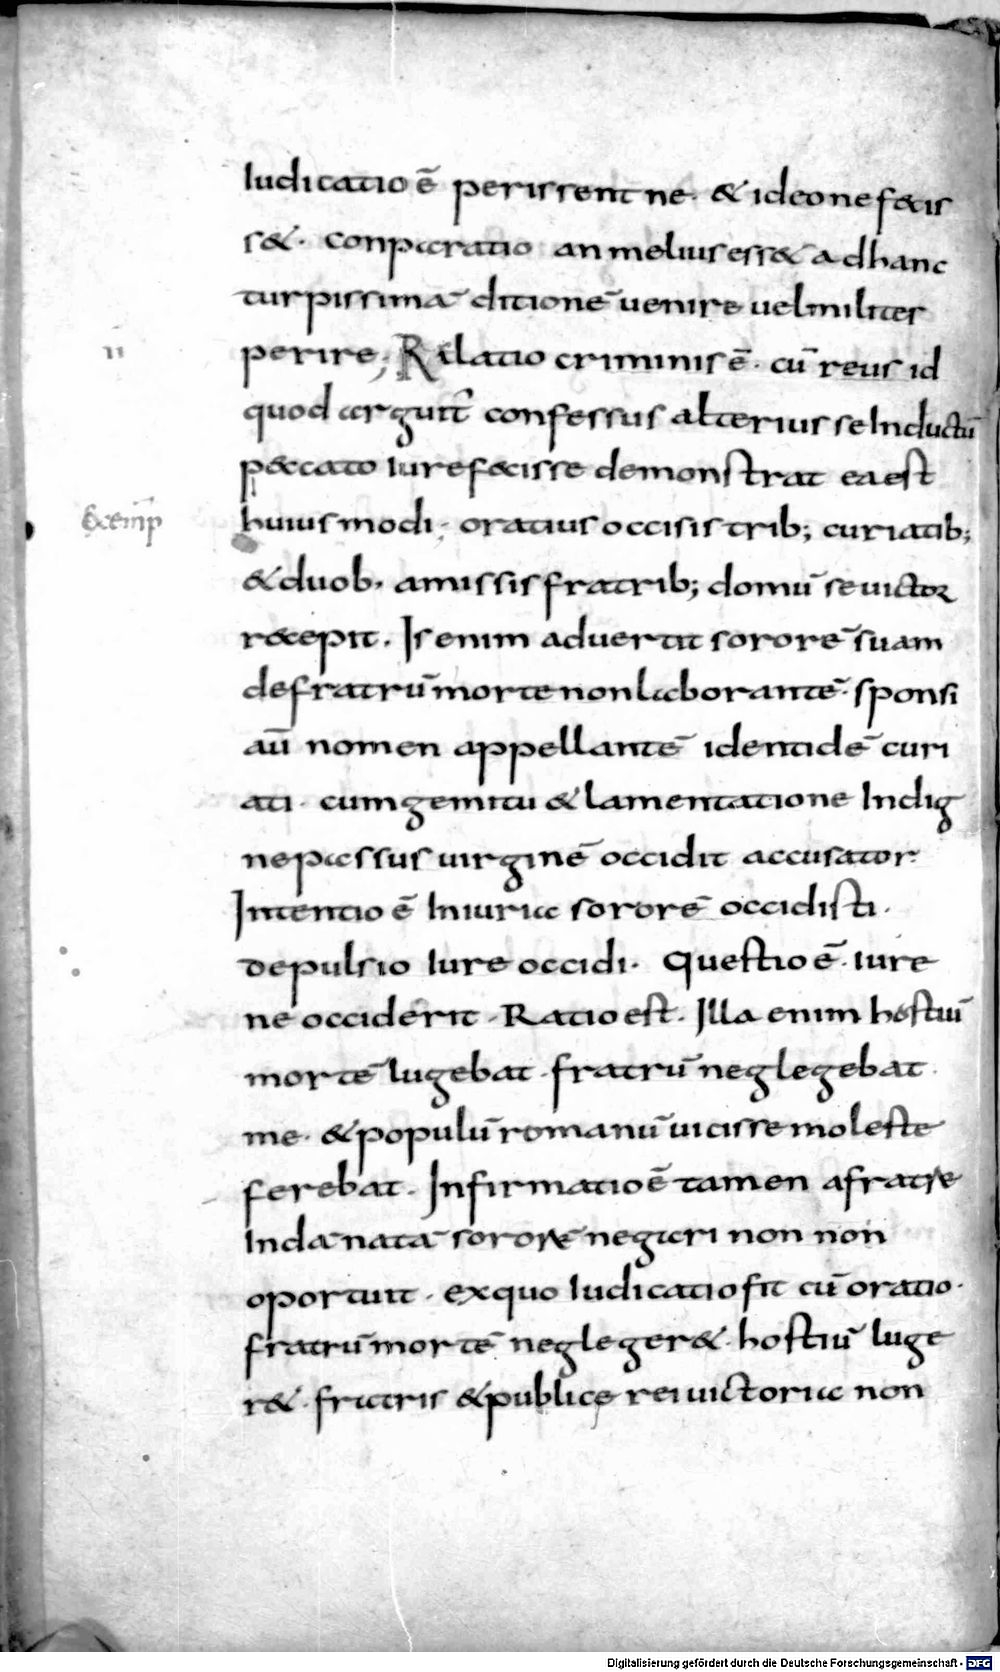 Iudicatio ē perissent ne · & ideo ne f&is
s& · conparatio an melius ess& adhanc
turpissimā ditionē uenire uel militer
perire; Relatio criminis ē · cū reus id
n
quod arguit̄ confessus alterius se Inductū
p&cato iure f&cisse demonstrat ea est
huius modi · oratius occisis trib; curiatib;
&cēmp
& duob· amissis fratrib; domū se uictor
r&cepit. Is enim aduertit sororē suam
de fratrū morte non laborantē · sponsi
aū nomen appellantē identidē curi
ati · cum gemitu & lamentatione Indig
ne passus uirginē occidit accusator·
Intentio ē Iniuria sororē occidisti ·
depulsio Iure occidi · Questio ē · iure
ne occiderit · Ratio est. Illa enim hostiū
mortē lugebat · fratrū neglegebat ·
me · & populū romanū uicisse moleste
ferebat. Infirmatio ē tamen a fratre
Indānatā sororē negari non non
oportuit · ex quo Iudicatio fit cū oratio·
fratrū mortē negleger& · hostiū luge
r& · fratris & publice rei uictoria non
Digitalisierung gefördert durch die Deutsche Forschungsgemeinschaft - DFG